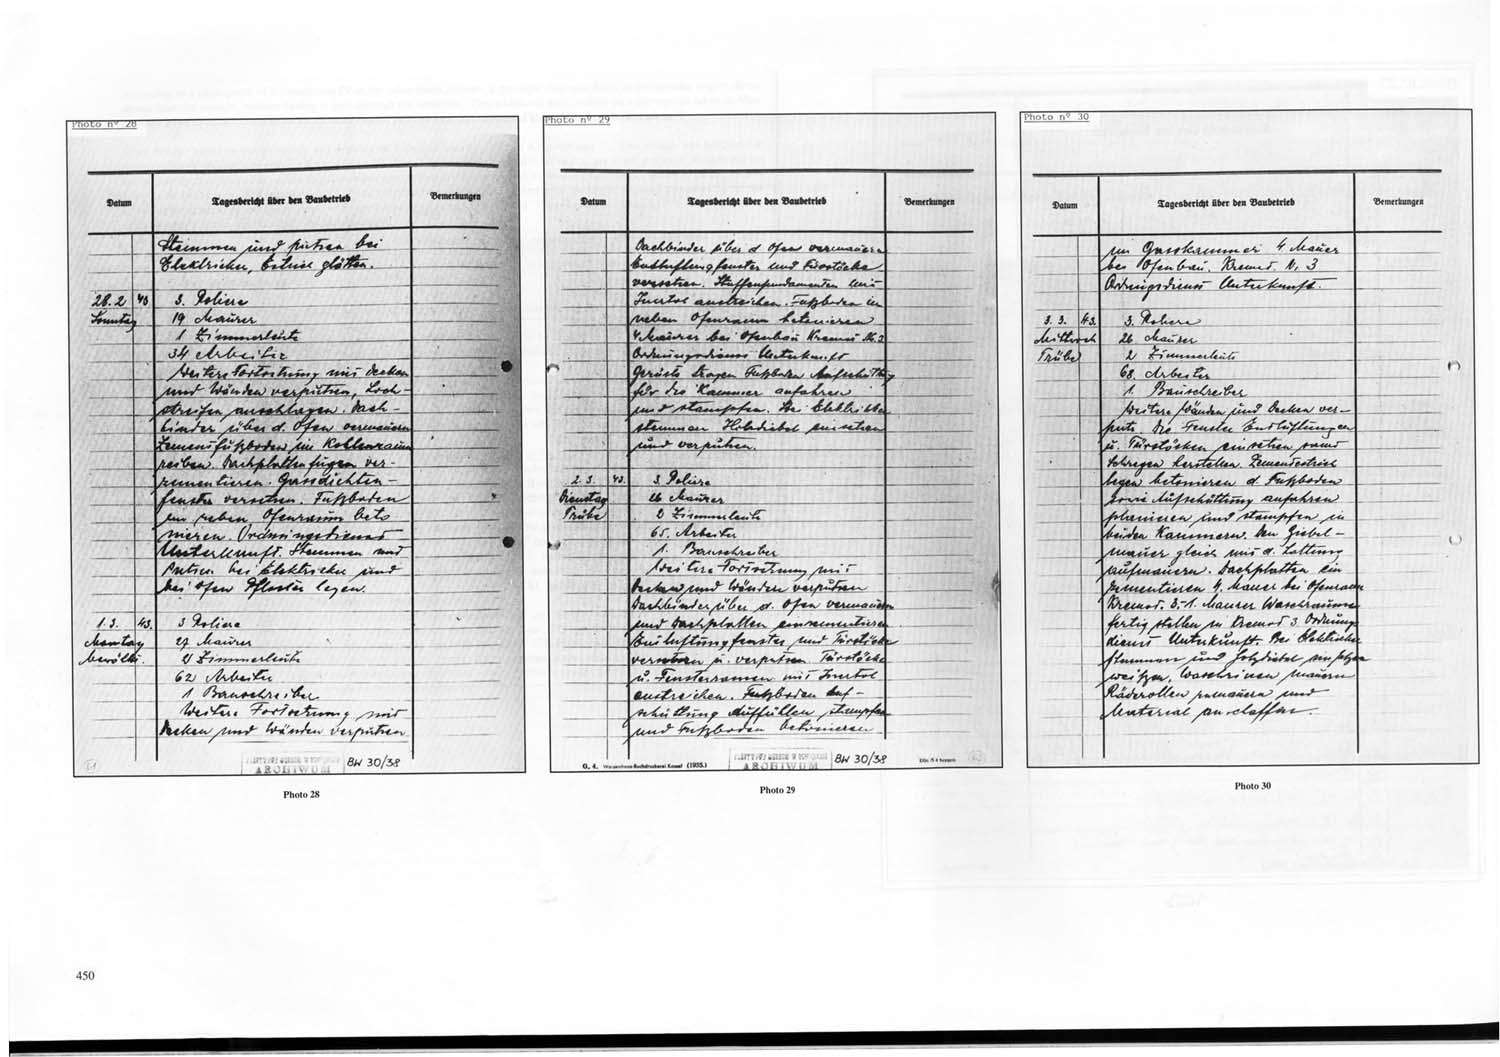 Photo nº 28
Datum
Tagesbericht über den Baubetrieb
Bemerkungen
Stemmen und putzen bei
Elektricker, Estrich glätten.
28.2 43 3. Poliere
Sonntag 19 Maurer
1 Zimmerleute
34 Arbeiter
Weitere Fortsetzung mit Decken
und Wänden verputzen, Loch-
streifen anschlagen. Dach-
binder über d. Ofen vermauern
Zementfußboden im Kohlenraum
reiben. Dachplattenfugen ver-
zementieren. Gassdichten-
fenster versetzen. Fußboden
im neben Ofenraum beto
nieren. Ordnungsdienst
Unterkunft. Stemmen und
Putzen bei Elektricker und
bei Ofen Pflaster legen.
1.3. 43. 3 Poliere
Montag 27 Maurer
bewölkt. 2 Zimmerleute
62 Arbeiter
1 Bauschreiber
Weitere Fortsetzung mit
Decken und Wänden verputzen
ARCHIWUM
BW 30/38
Photo 28
Photo nº 29
Datum
Tagesbericht über den Baubetrieb
Bemerkungen
Dachbinder über d Ofen vermauern
Entlüftungfenster und Türstöcke
versetzen. mit
Inertol anstreichen. Fußboden im
neben Ofenraum betonieren
4 Maurer bei Ofenbau Kremat Nr. 3
Ordnungsdienst Unterkunft
Gerüste tragen Fußboden Aufschüttung
für die Kammer anfahren
und stampfen. Bei Elektricker
stemmen Holzdiebel einsetzen
und verputzen.
2.3. 43. 3 Poliere
Dienstag 26 Maurer
Trübe 2 Zimmerleute
65. Arbeiter
1. Bauschreiber
Weitere Fortsetzung mit
Decken und Wänden verputzen
Dachbinder über d. Ofen vermauern
und Dachplatten einzementieren
Entlüftungfenster und Türstöcke
versetzen u. verputzen Türstöcke
u. Fensterramen mit Inertol
anstreichen. Fußboden Auf-
schüttung Auffüllen stampfen
und Fußboden betonieren
G. 4. Waisenhaus-Buchdruckerei Kassel (1935.)
ARCHIWUM
BW 30/38
Photo 29
Photo nº 30
Datum
Tagesbericht über den Baubetrieb
Bemerkungen
im Gasskammer 4 Mauer
bei Ofenbau. Kremat. N. 3
Ordnungsdienst Unterkunft.
3.3. 43. 3. Poliere
Mittwoch 26 Maurer
Trübe 2 Zimmerleute
68. Arbeiter
1. Bauschreiber
Weitere Wänden und Decken ver-
putz. Die Fenster Endlüftungen
u. Türstöcken einsetzen samt
Schregen herstellen. Zementestrich
legen betonieren d. Fußboden
sowie Aufschüttung anfahren
planieren und stampfen in
beiden Kammern. Den Giebel-
mauer gleich mit d. Lattung
aufmauern. Dachplatten ein
zementieren 4. Maurer bei Ofenraum
Kremat. 3.-1. Maurer Waschraume
fertig stellen in Kremat 3. Ordnung
dienst Unterkunft. Bei Elektricker
stemmen und Holzdiebel einsetzen
mauern
und
Material anschaffen.
Photo 30
450